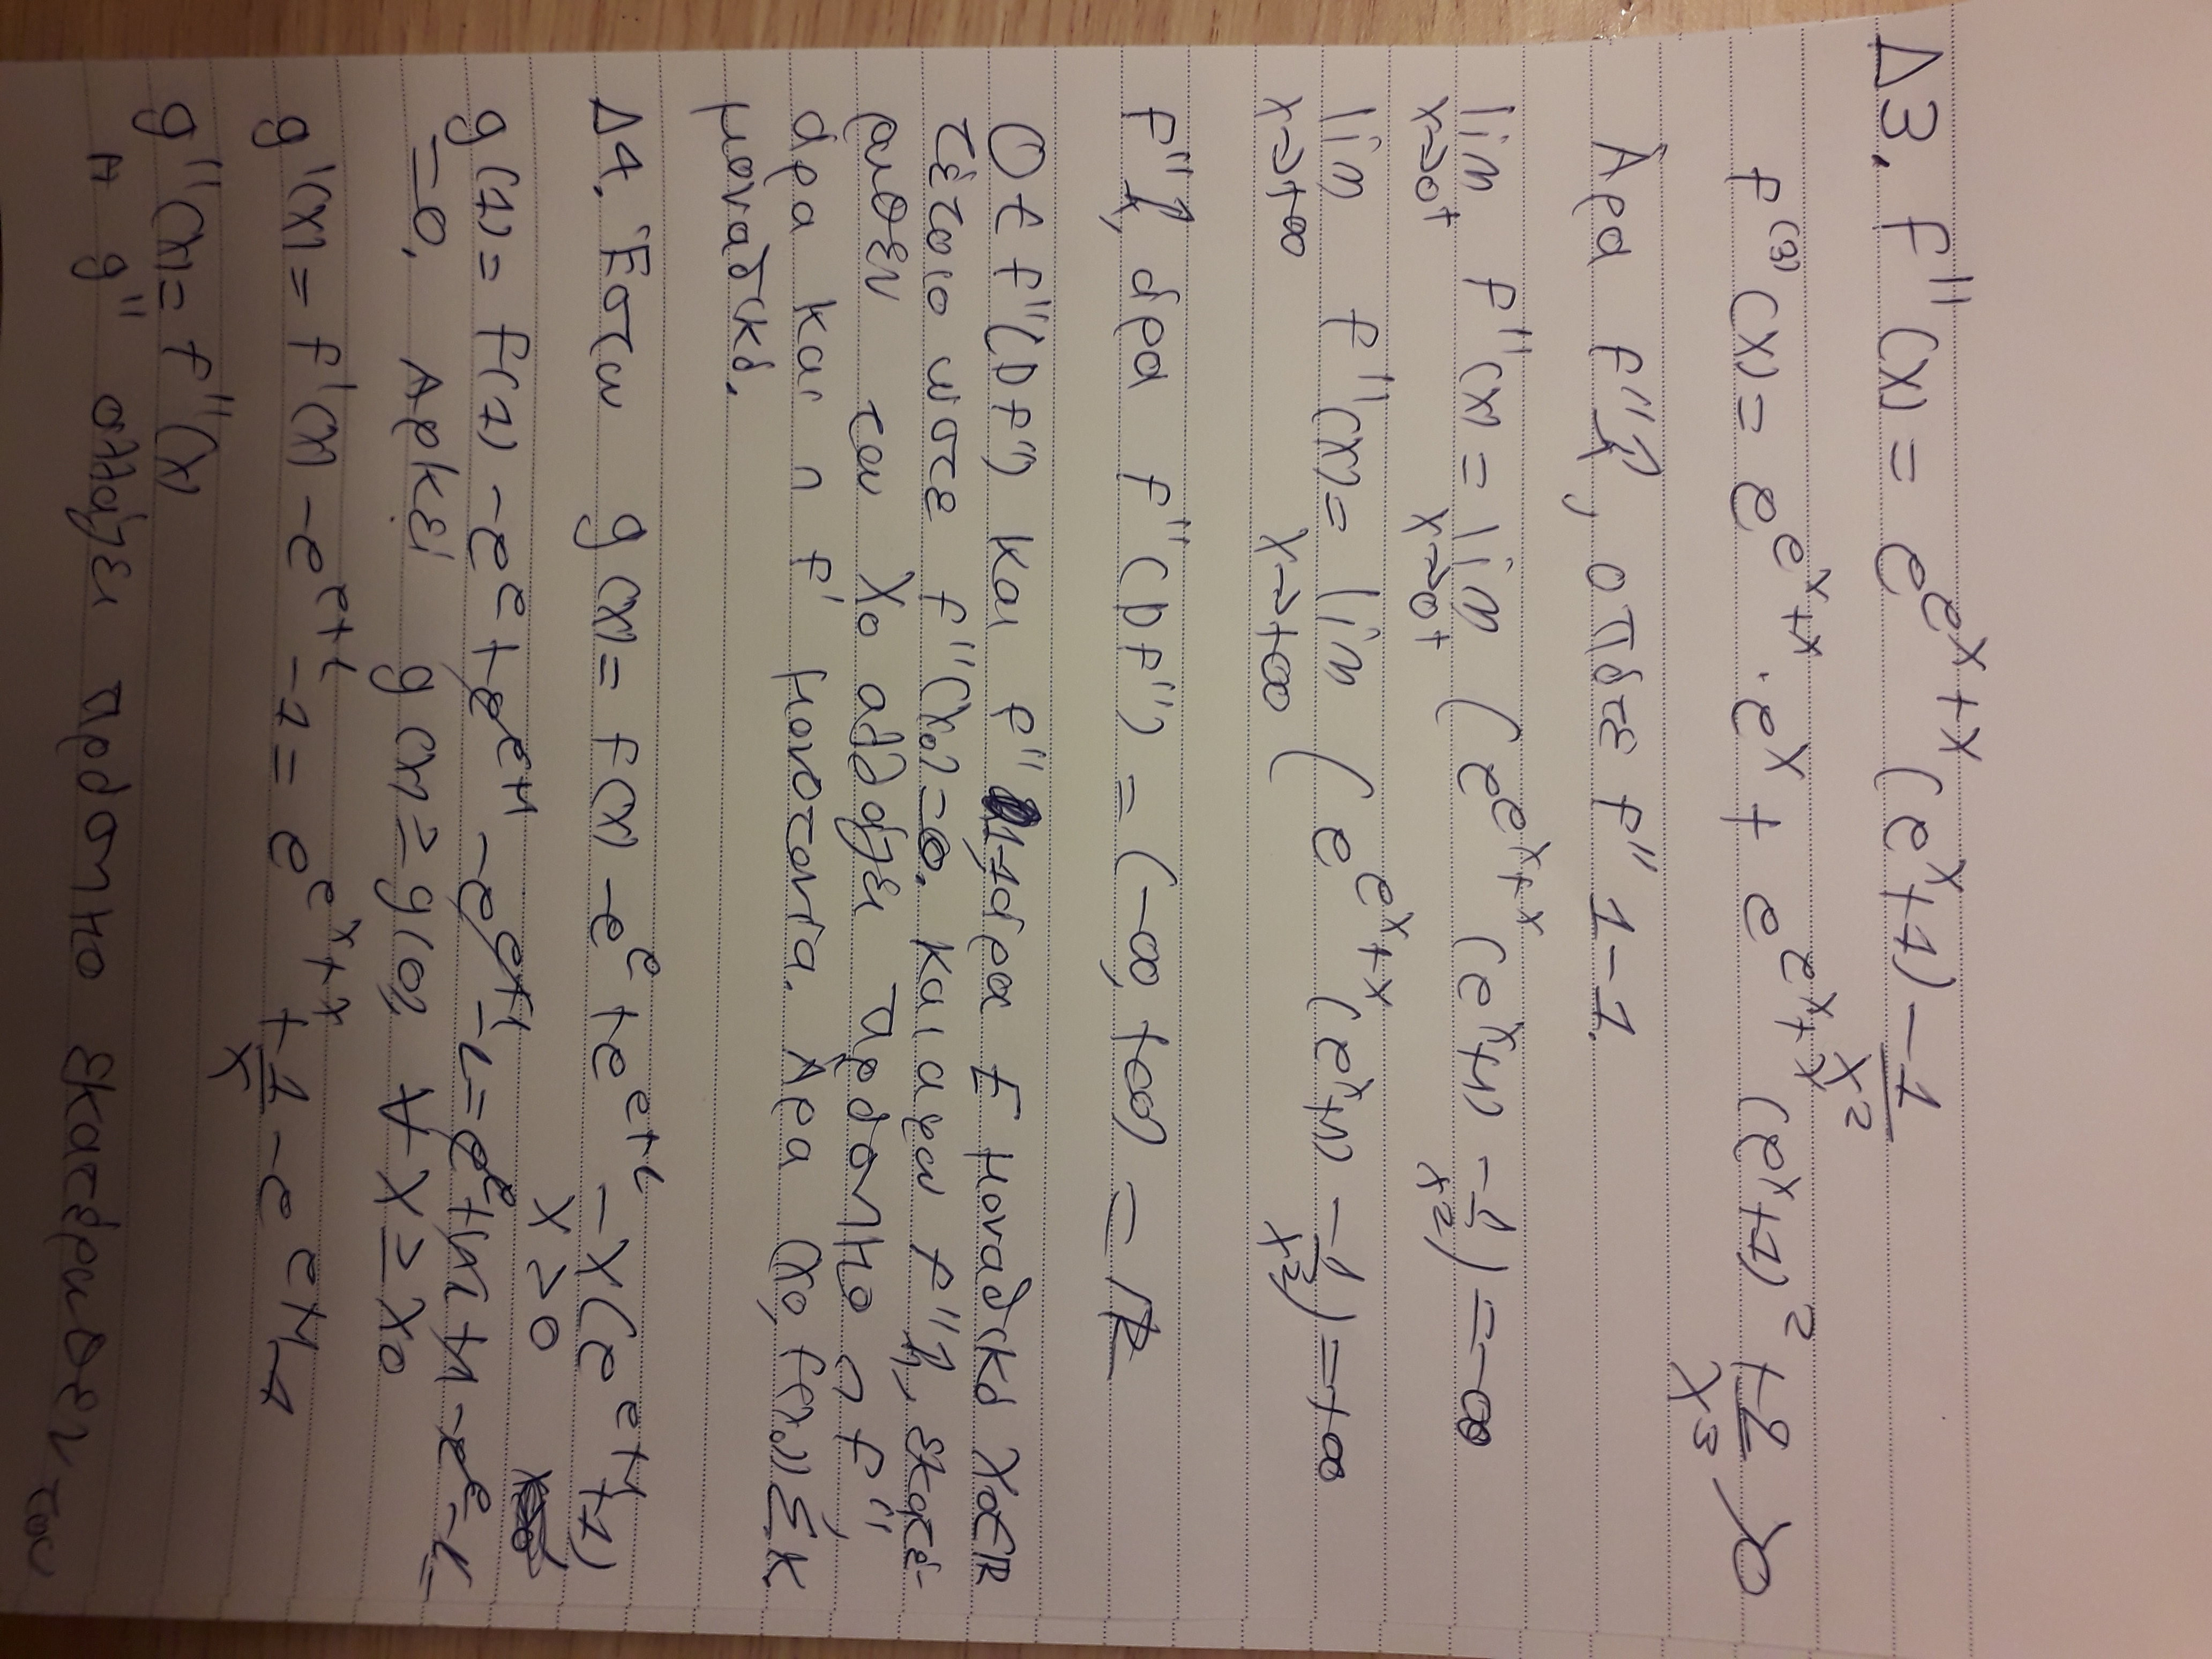 Δ3. F''(x) = e^{e^x+x}(e^x+1) - 1/x²
F^{(3)}(x) = e^{e^x+x}·e^x + e^{e^x+x}(e^x+1)² + 2/x³ > 0
Άρα F''↑, οπότε F'' 1-1.
lim_{x→0+} F''(x) = lim_{x→0+} (e^{e^x+x}(e^x+1) - 1/x²) = -∞
lim_{x→+∞} F''(x) = lim_{x→+∞} (e^{e^x+x}(e^x+1) - 1/x²) = +∞
F''↑, άρα F''(DF'') = (-∞, +∞) = ℝ
0 ∈ F''(DF'') και F'' 1-1 άρα ∃ μοναδικό x₀∈ℝ
τέτοιο ώστε F''(x₀)=0. και αφού F''↑, εκατέ-
ρωθεν του x₀ αλλάζει πρόσημο η F''
άρα και η F' μονοτονία. Άρα (x₀, F(x₀)) Σ.Κ
μοναδικό.
Δ4. Έστω g(x) = F(x) - e^e + e^{e+1} - x(e^{e+1}+1)
x>0
g(1) = F(1) - e^e + e^{e+1} - e^{e+1} - 1 = e^e + ln1 + 1 - e^e - 1 =
=0. Αρκεί g(x) ≥ g(1), ∀ x ≥ x₀
g'(x) = F'(x) - e^{e+1} - 1 = e^{e^x+x} + 1/x - e^{e+1} - 1
g''(x) = F''(x)
Η g'' αλλάζει πρόσημο εκατέρωθεν του